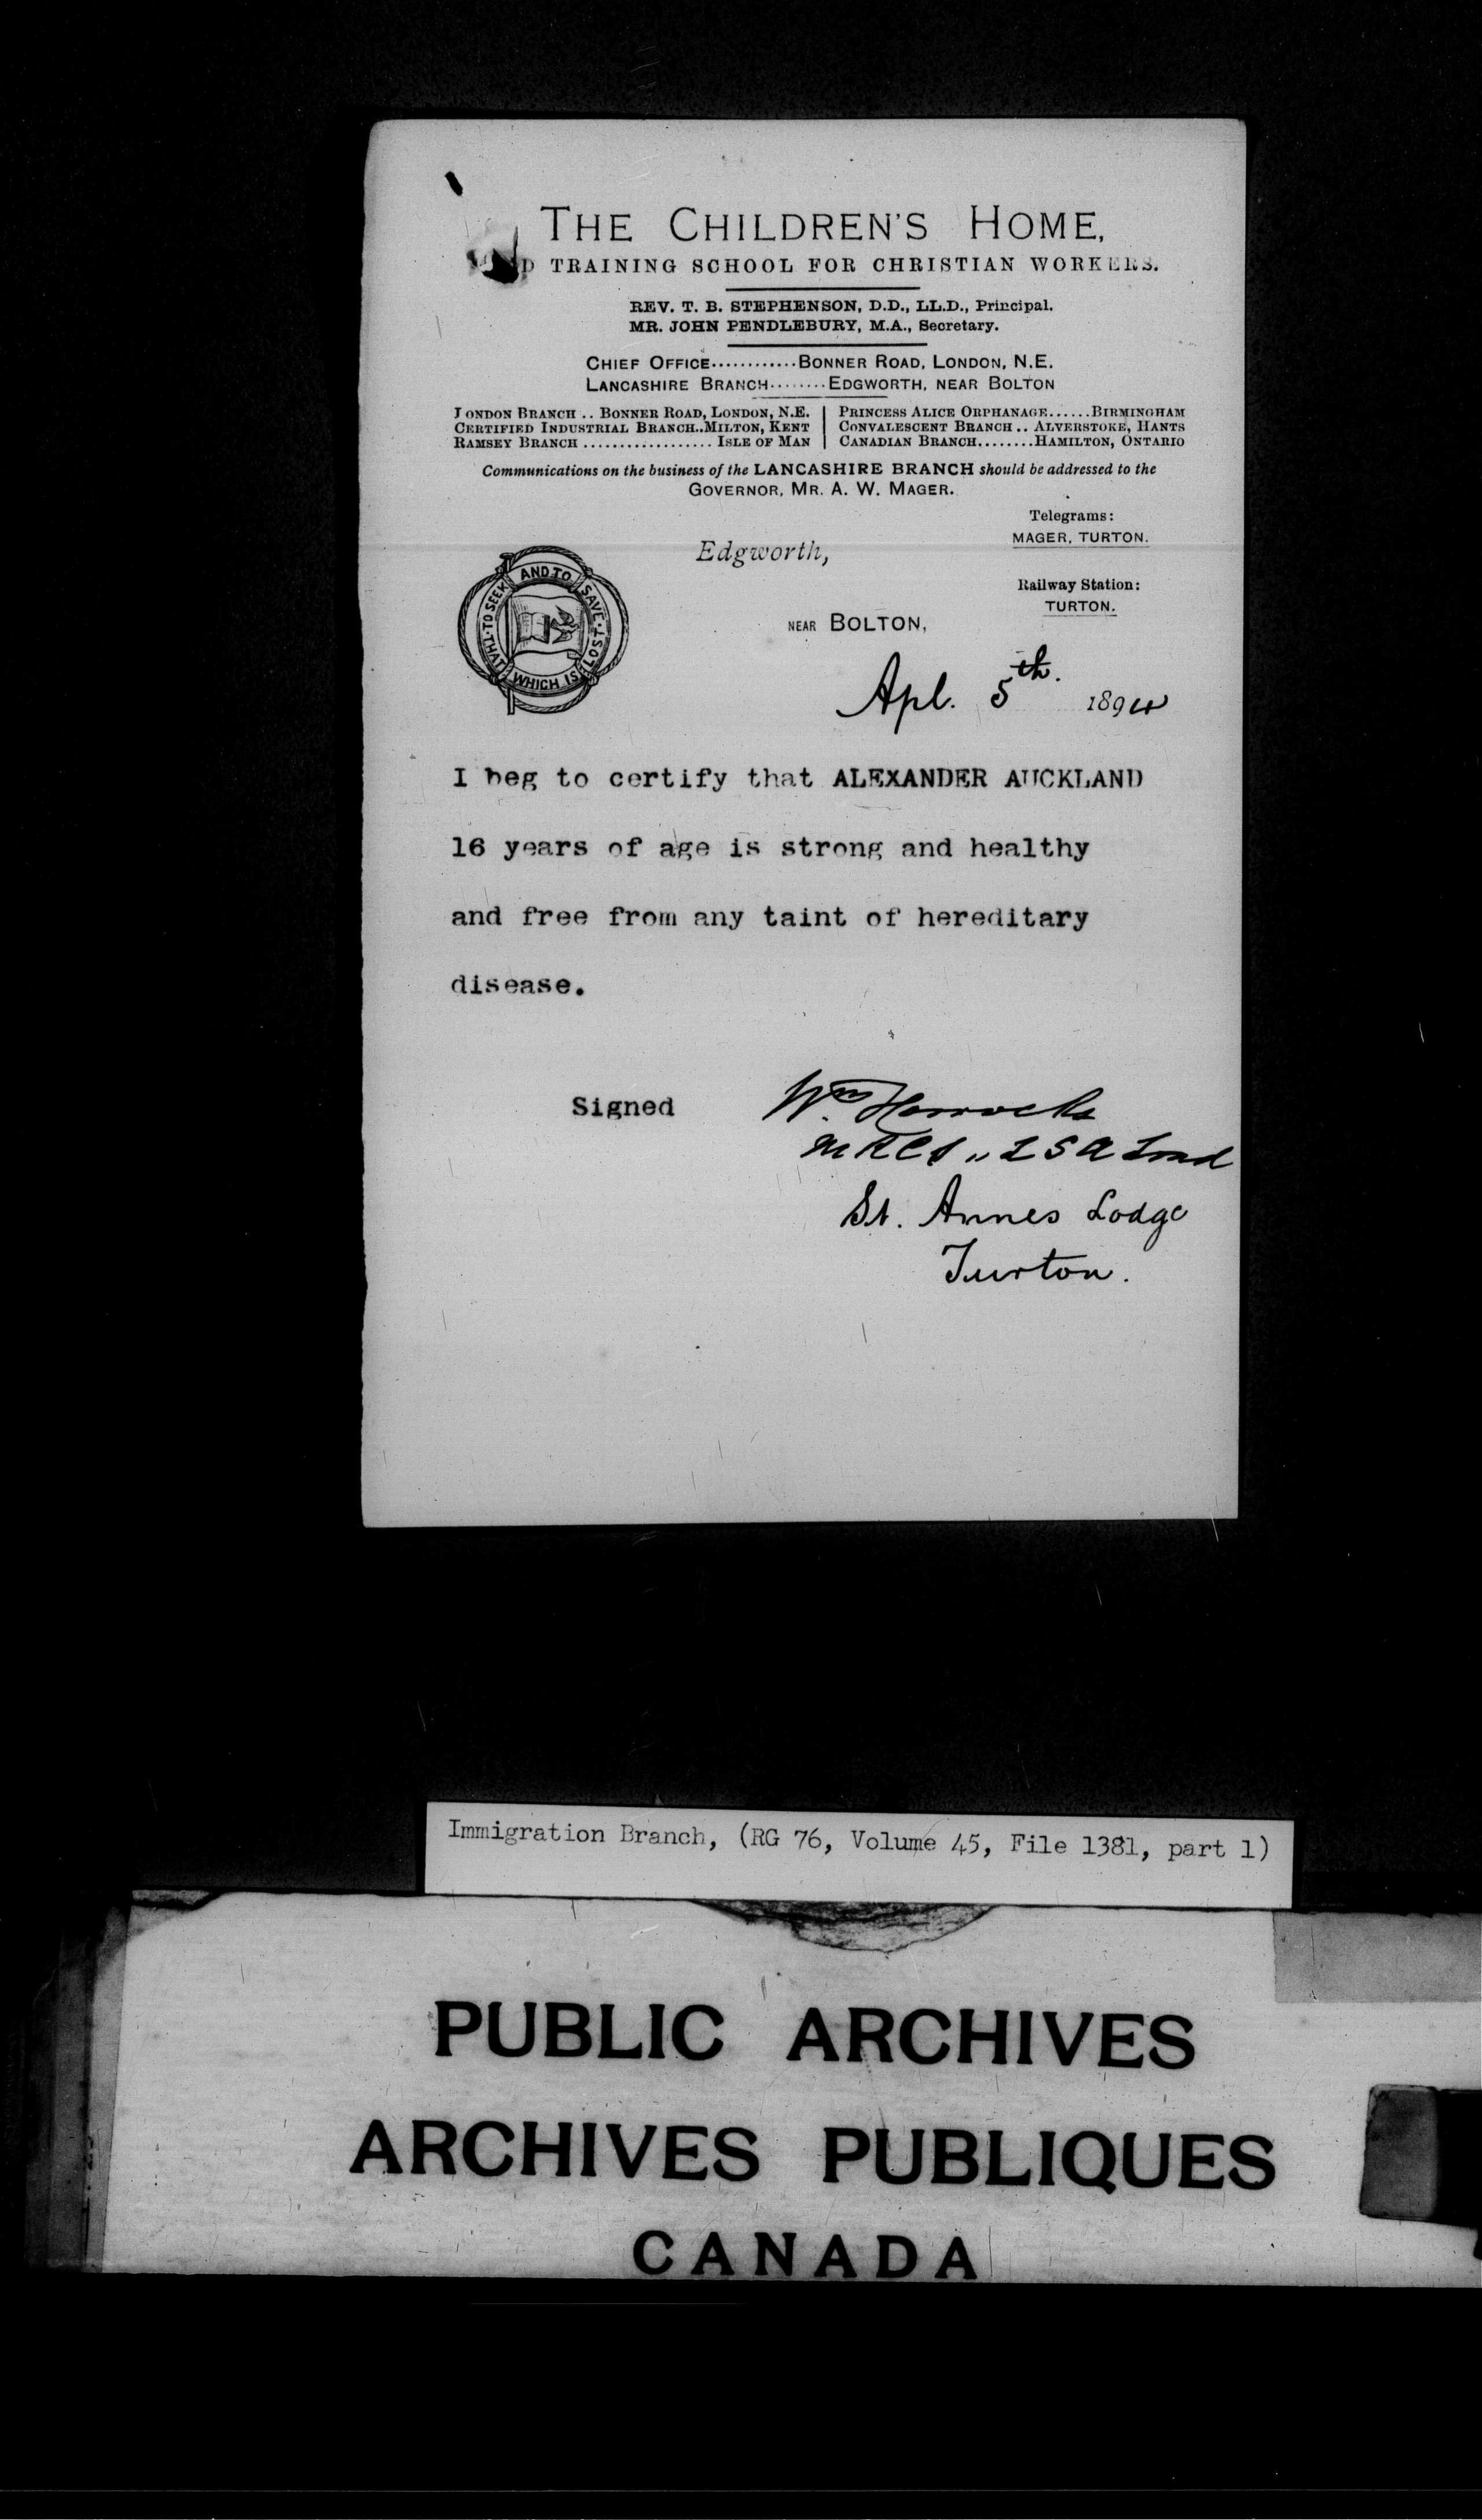 THE CHILDREN'S HOME,
D TRAINING SCHOOL FOR CHRISTIAN WORKERS.
REV. T. B. STEPHENSON, D.D., LL.D., Principal.
MR. JOHN PENDLEBURY, M.A., Secretary.
CHIEF OFFICE............BONNER ROAD, LONDON, N.E.
LANCASHIRE BRANCH........EDGWORTH, NEAR BOLTON
LONDON BRANCH .. BONNER ROAD, LONDON, N.E.
CERTIFIED INDUSTRIAL BRANCH..MILTON, KENT
RAMSEY BRANCH .................. ISLE OF MAN
PRINCESS ALICE ORPHANAGE......BIRMINGHAM
CONVALESCENT BRANCH .. ALVERSTOKE, HANTS
CANADIAN BRANCH........HAMILTON, ONTARIO
Communications on the business of the LANCASHIRE BRANCH should be addressed to the
GOVERNOR, MR. A. W. MAGER.
Telegrams:
MAGER, TURTON.
Railway Station:
TURTON.
AND TO SAVE THAT WHICH IS LOST · TO SEEK
Edgworth,
NEAR BOLTON,
Apl. 5th. 1894
I beg to certify that ALEXANDER AUCKLAND
16 years of age is strong and healthy
and free from any taint of hereditary
disease.
Signed Wm Horrocks
MRCS,, LSA Lond
St. Annes Lodge
Turton.
Immigration Branch, (RG 76, Volume 45, File 1381, part 1)
PUBLIC ARCHIVES
ARCHIVES PUBLIQUES
CANADA